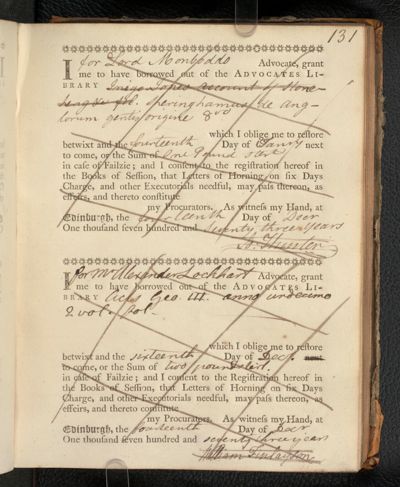 131
for Lord Monboddo Advocate, grant
I me to have borrowed out of the ADVOCATES LI-
BRARY Inigo Jones account of Stone-
heng fol. Speringhamus de Ang-
lorum gentis origine 8vo
which I oblige me to restore
betwixt and the fourteenth Day of Janry next
to come, or the Sum of One Pound Sterl
in case of Failzie; and I consent to the registration hereof in
the Books of Session, that Letters of Horning on six Days
Charge, and other Executorials needful, may pass thereon, as
effeirs, and thereto constitute
my Procurators. As witness my Hand, at
Edinburgh, the Day of Decr
One thousand seven hundred and seventy three years
Hunter
for Mr Alexander Lockhart Advocate, grant
I me to have borrowed out of the ADVOCATES LI-
BRARY Acts Geo. III. anno undecimo
2 vol. fol.
which I oblige me to restore
betwixt and the sixteenth Day of Decr. next
to come, or the Sum of two pound sterl.
in case of Failzie; and I consent to the Registration hereof in
the Books of Session, that Letters of Horning on six Days
Charge, and other Executorials needful, may pass thereon, as
effeirs, and thereto constitute
my Procurators. As witness my Hand, at
Edinburgh, the fourteenth Day of Decr
One thousand seven hundred and seventy three years
William Finlayson